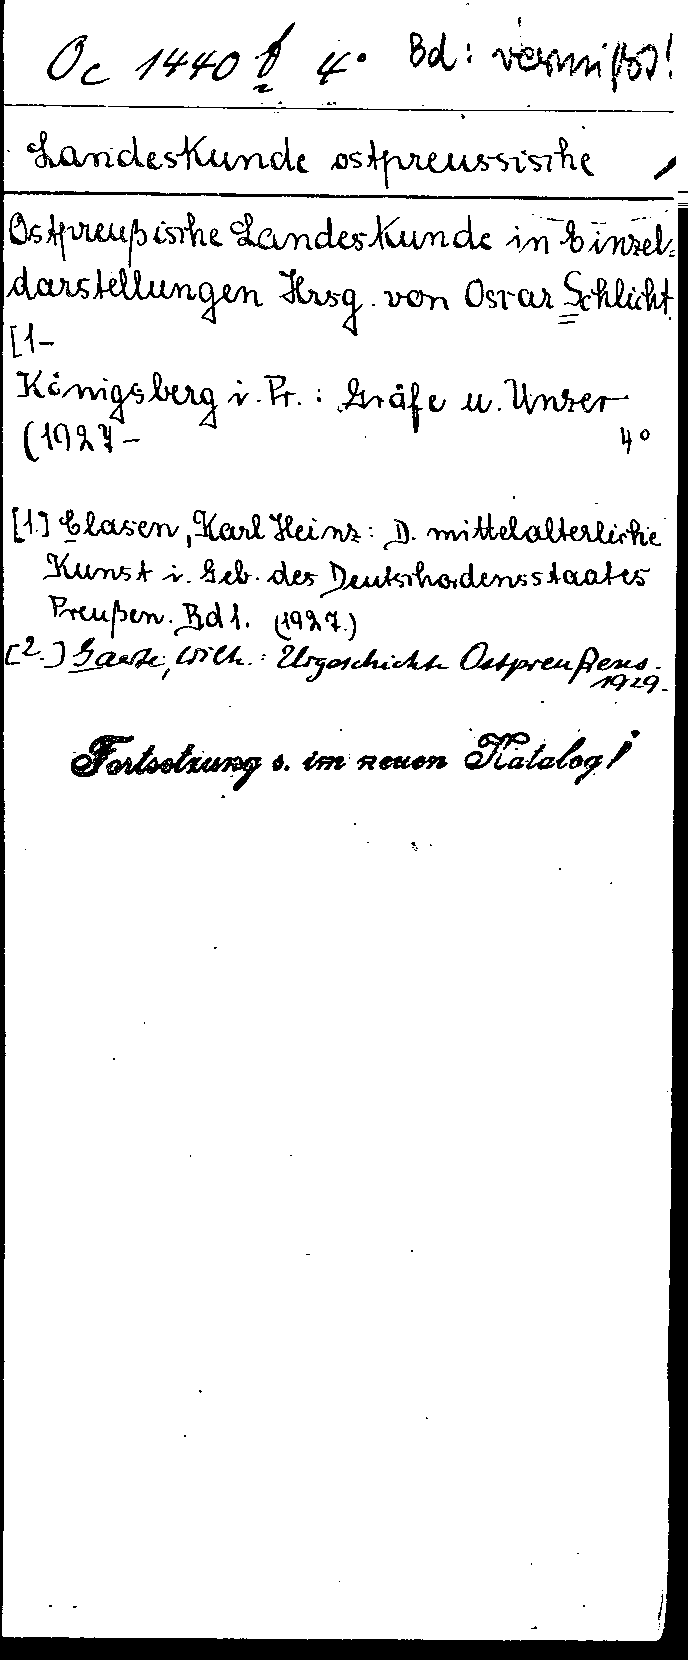 Oc 1440 b 4° Bd: vermißt!
Landeskunde ostpreussische
Ostpreußische Landeskunde in Einzel-
darstellungen Hrsg. von Oscar Schlicht
[1-
Königsberg i. Pr.: Gräfe u. Unzer
(1927- 4°
[1.] Clasen, Karl Heinz: D. mittelalterliche
Kunst i. Geb. des Deutschordensstaates
Preußen. Bd 1. (1927.)
[2.] Gaerte, Wilh.: Urgeschichte Ostpreußens.
1929.
Fortsetzung s. im neuen Katalog!